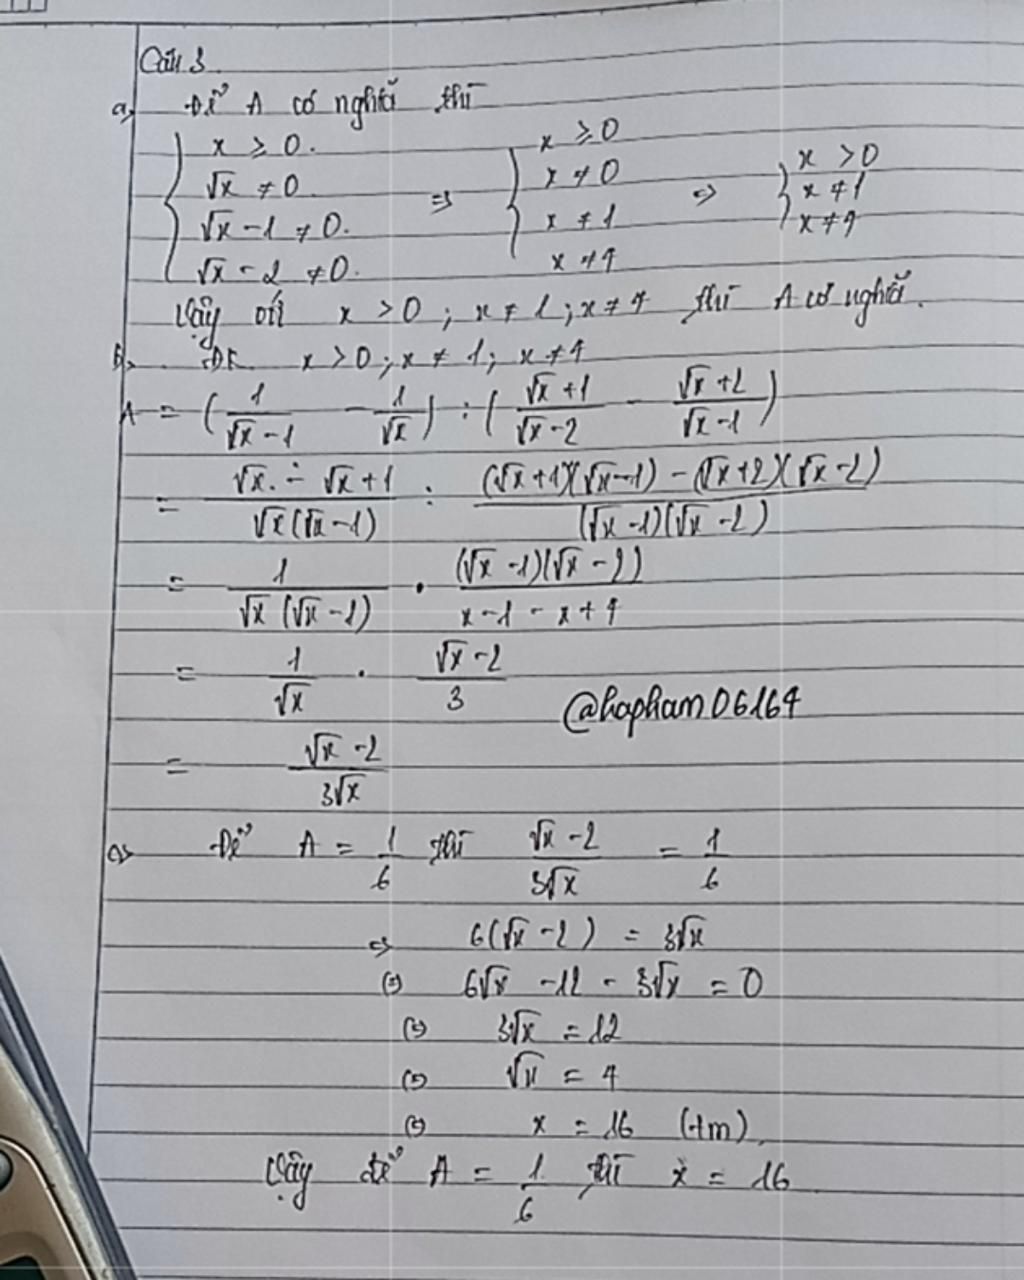 Câu 3
a, Để A có nghĩa thì
{ x ≥ 0. √x ≠ 0 √x - 1 ≠ 0. √x - 2 ≠ 0. => { x ≥ 0 x ≠ 0 x ≠ 1 x ≠ 4 => { x > 0 x ≠ 1 x ≠ 4
Vậy với x > 0 ; x ≠ 1 ; x ≠ 4 thì A có nghĩa.
b, ĐK x > 0 ; x ≠ 1 ; x ≠ 4
A = (1/(√x - 1) - 1/√x) : ((√x + 1)/(√x - 2) - (√x + 2)/(√x - 1))
= (√x - √x + 1)/(√x(√x - 1)) : ((√x + 1)(√x - 1) - (√x + 2)(√x - 2))/((√x - 1)(√x - 2))
= 1/(√x(√x - 1)) · ((√x - 1)(√x - 2))/(x - 1 - x + 4)
= 1/√x · (√x - 2)/3
@hapham06164
= (√x - 2)/(3√x)
c, Để A = 1/6 thì (√x - 2)/(3√x) = 1/6
=> 6(√x - 2) = 3√x
(=) 6√x - 12 - 3√x = 0
(=) 3√x = 12
(=) √x = 4
(=) x = 16 (tm)
Vậy để A = 1/6 thì x = 16